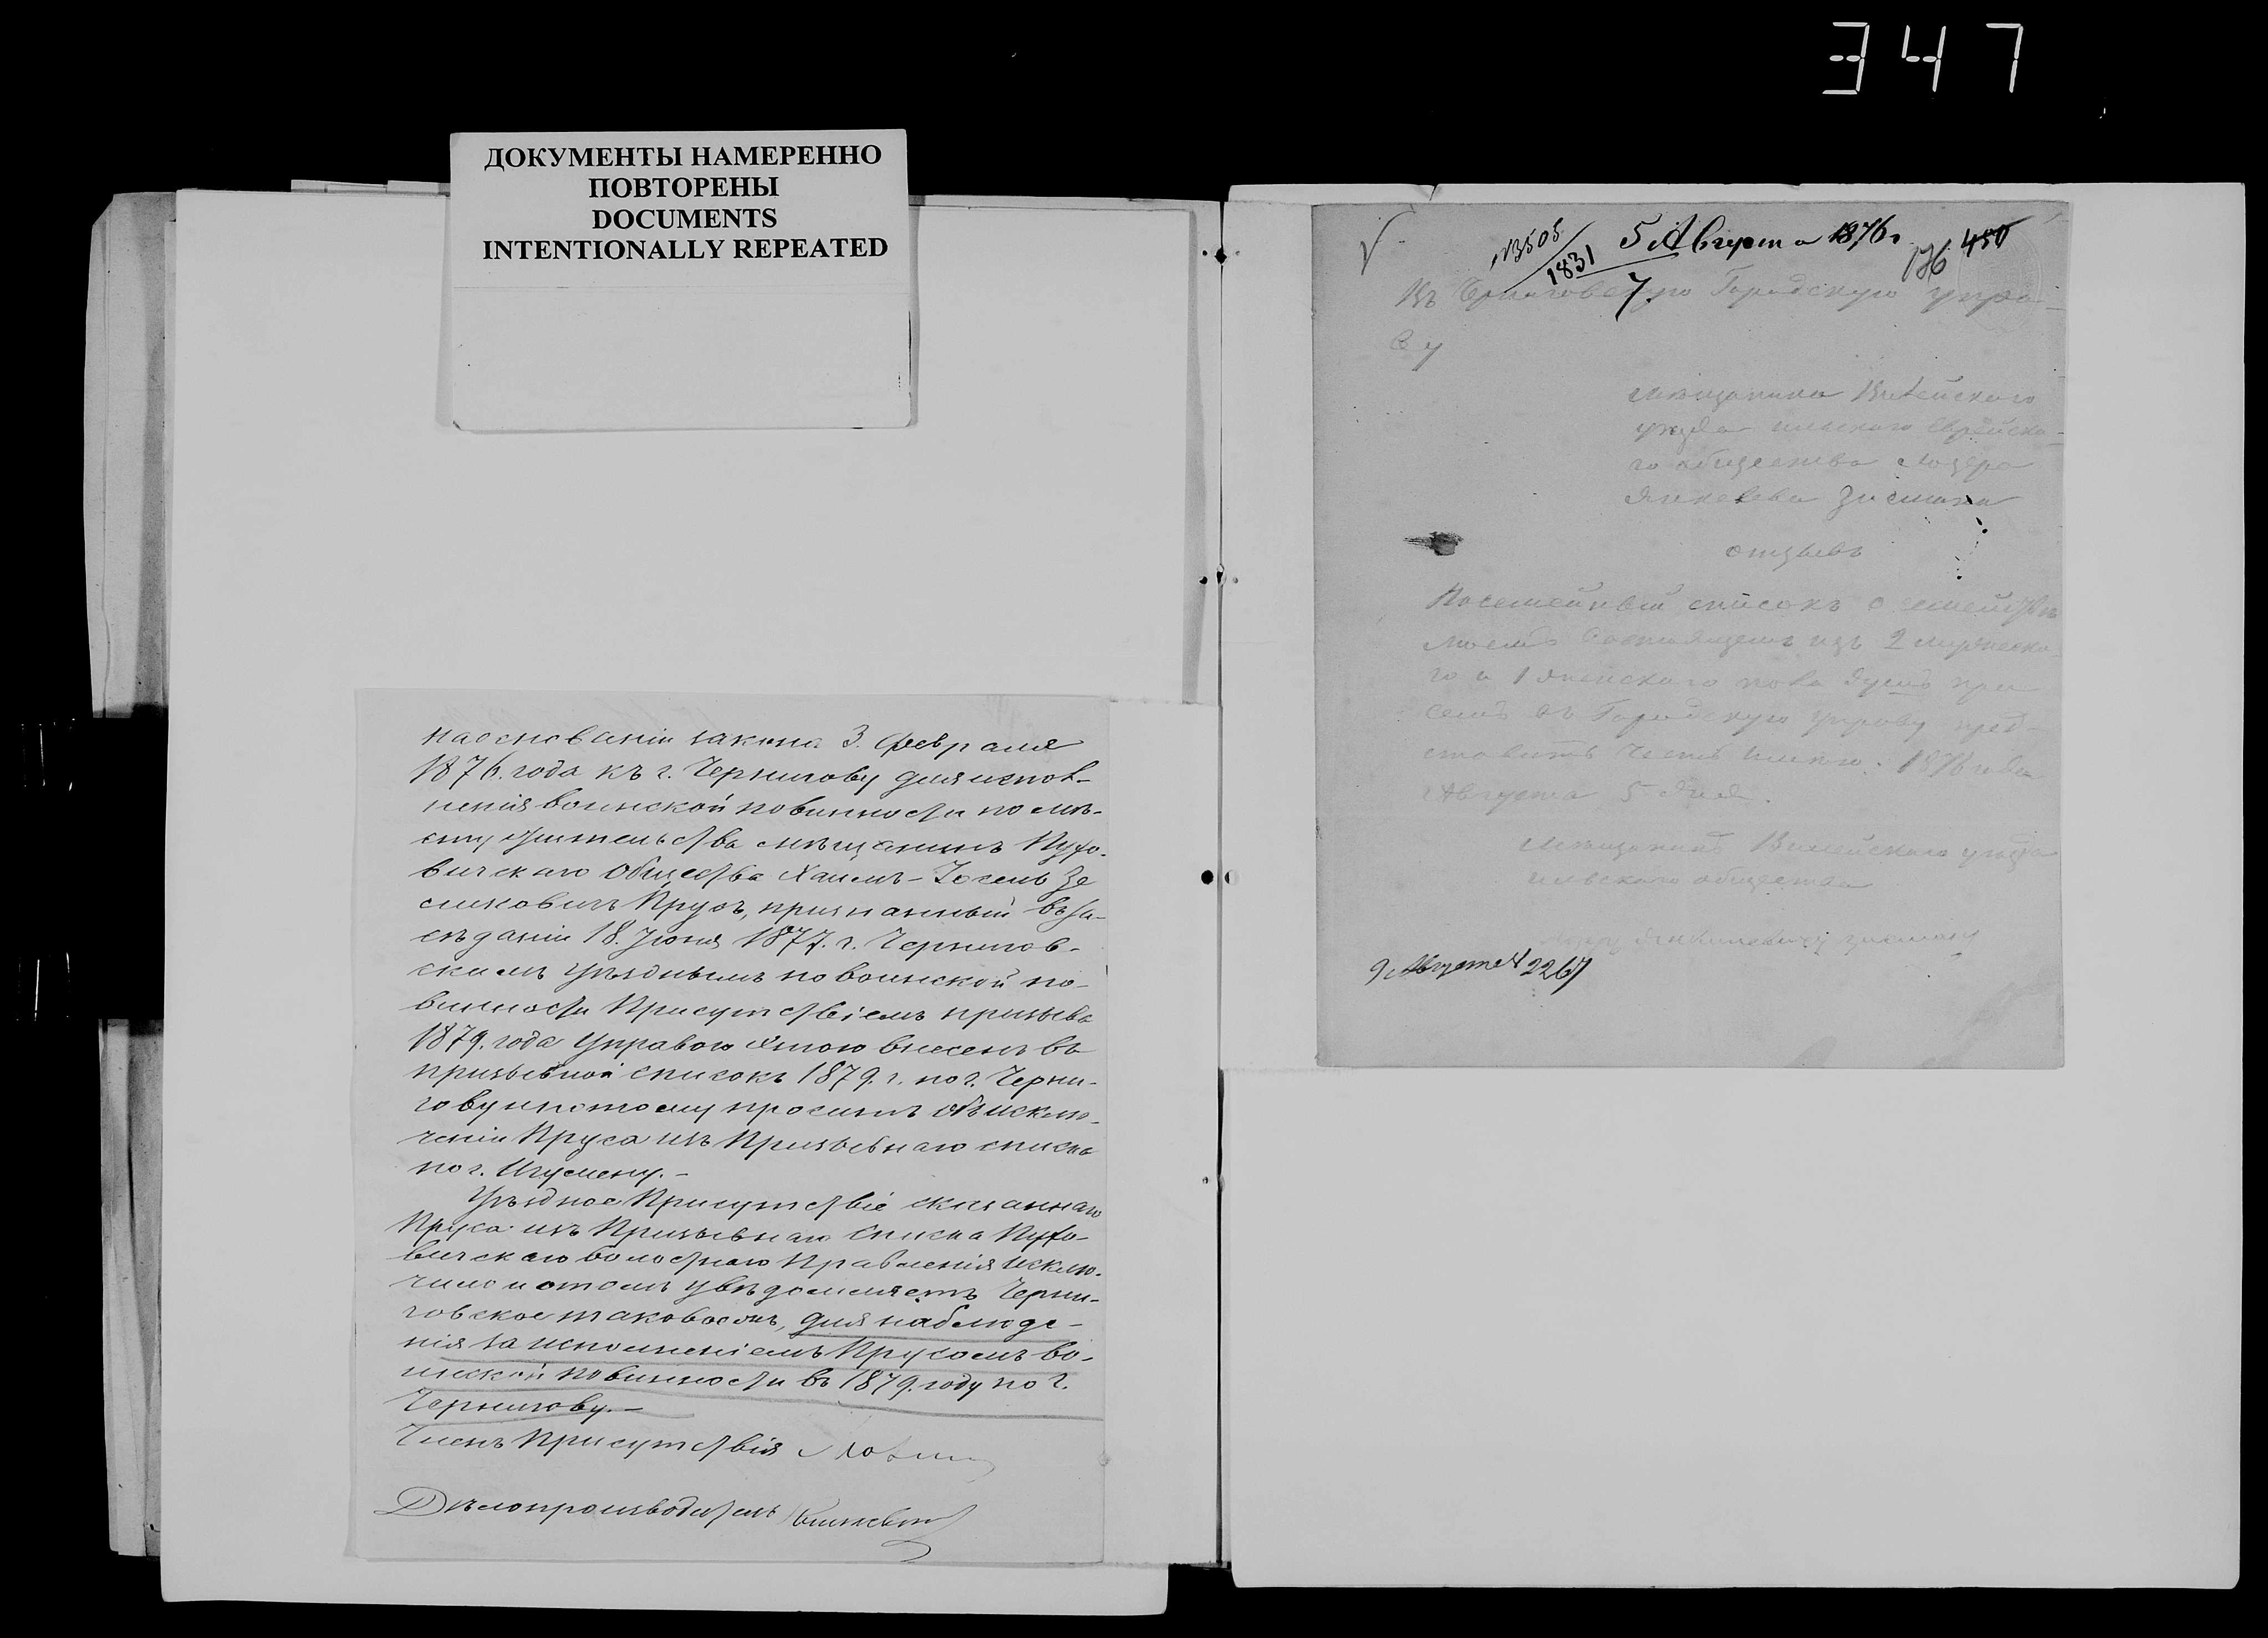 347
ДОКУМЕНТЫ НАМЕРЕННО
ПОВТОРЕНЫ
DOCUMENTS
INTENTIONALLY REPEATED
на основаніи закона 3. февраля
1876. года къ г. Чернигову для испол-
ненія воинской повинности по мѣ-
сту жительства мѣщанинъ Пухо-
вичскаго Общества Хаимъ-Іосель Зе
ликовичъ Прусъ, признанный въ за-
сѣданіи 18. Іюня 1877. г. Чернигов-
скимъ Уѣзднымъ по воинской по-
винности Присутствіемъ призыва
1879. года Управою этою внесенъ въ
призывной списокъ 1879. г. по г. Черни-
гову и потому проситъ объ исклю-
ченіи Пруса изъ Призывнаго списка
по г. Игумену.-
Уѣздное Присутствіе сказаннаго
Пруса изъ Призывнаго списка Пухо-
вичскаго волостнаго Правленія исклю-
чило и о томъ увѣдомляетъ Черни-
говское таковое, для наблюде-
нія за исполненіемъ Прусомъ во-
инской повинности въ 1879. году по г.
Чернигову.-
Членъ Присутствія
Дѣлопроизводитель
№3505
1831
5 Августа 1876 г.
7
176 450
Въ Черниговскую Городскую Упра-
ву
мѣщанина Вилейскаго
уѣзда ильскаго Еврейска-
го общества Мозера
Янкелева Зисмана
отзывъ
Посемейный списокъ о семействѣ
моемъ состоящемъ изъ 2 мужеска-
го и 1 женскаго пола душъ при
семъ въ Городскую Управу пред-
ставить честь имѣю. 1876 года
Августа 5 дня.
Мѣщанинъ Вилейскаго уѣзда
ильскаго общества
9 Августа 2267